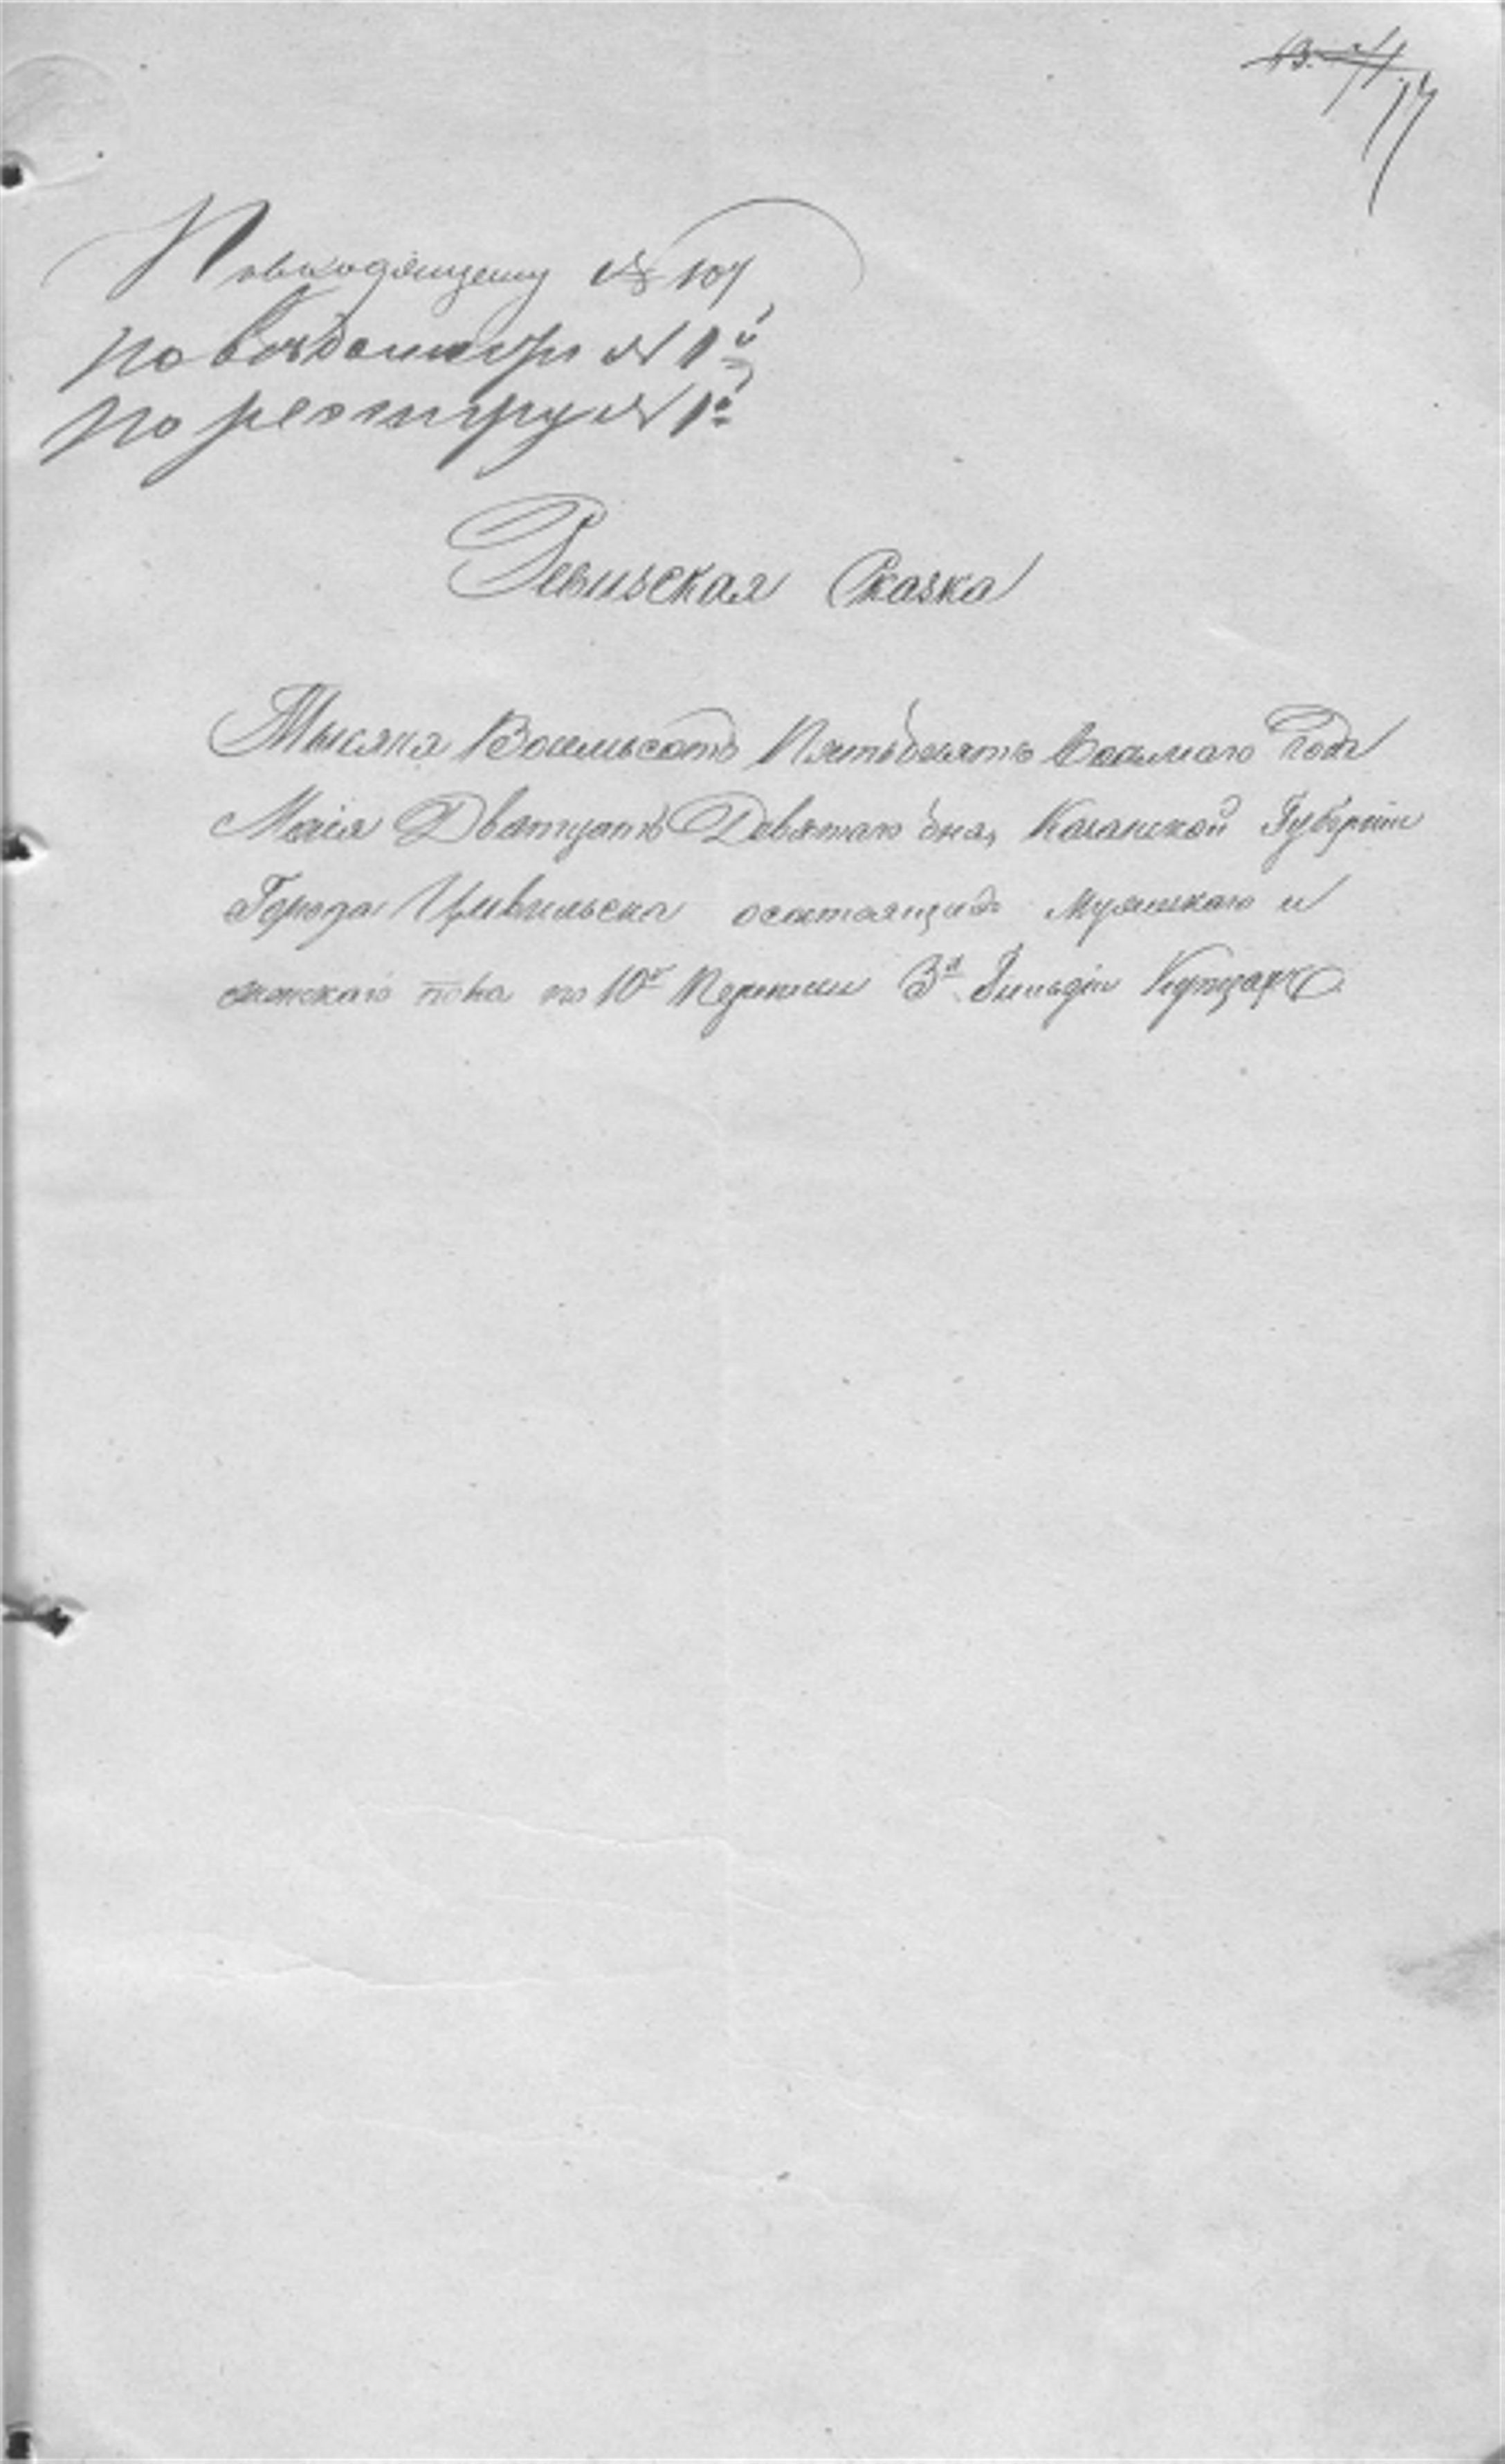 17
По входящему № 107
по реестру № 1й
Ревиская Сказка
Тысяча Восемьсотъ Пятьдесятъ Восьмаго Года
Маія Дватцать Девятаго дня, Казанской Губернии
Города Цивильска осостоящихъ Мужескаго и
женскаго пола по 10й Переписи 3й Гильдіи Купцахъ